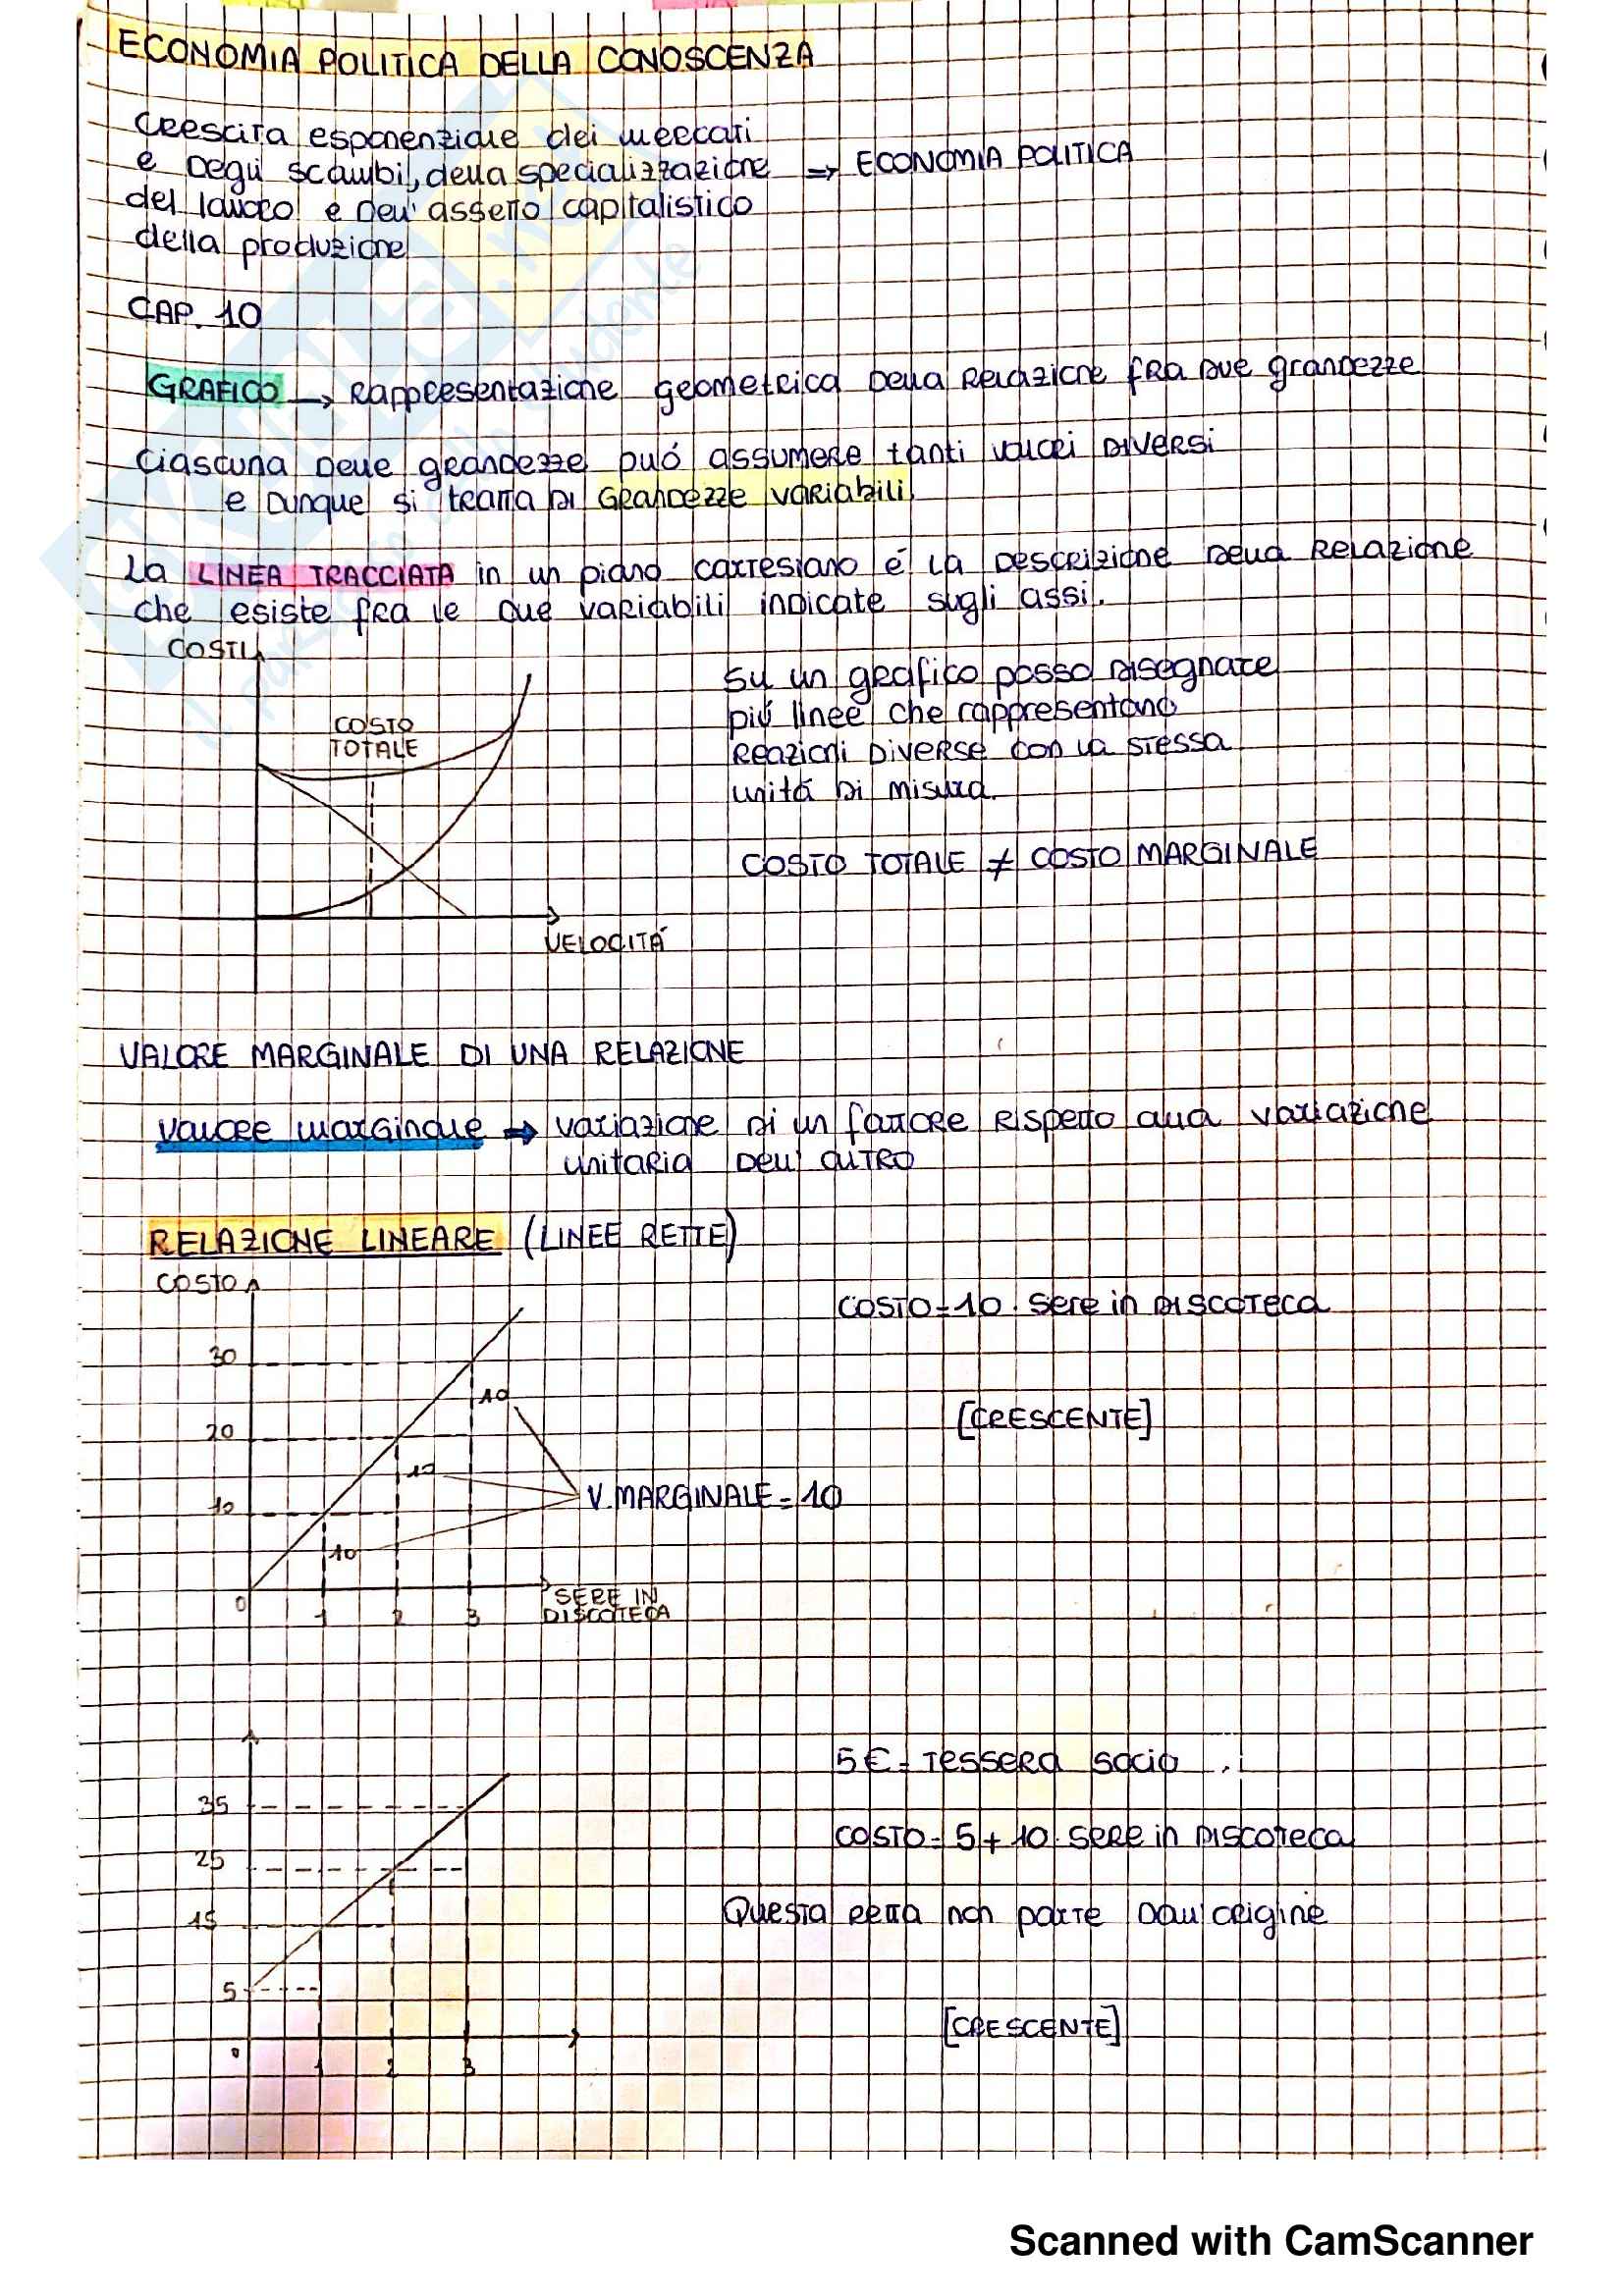 ECONOMIA POLITICA DELLA CONOSCENZA
Crescita esponenziale dei mercati
e degli scambi, della specializzazione → ECONOMIA POLITICA
del lavoro e dell'assetto capitalistico
della produzione
CAP. 10
GRAFICO → Rappresentazione geometrica della relazione fra due grandezze
Ciascuna delle grandezze puó assumere tanti valori diversi
e dunque si tratta di grandezze variabili
La LINEA TRACCIATA in un piano cartesiano é la descrizione della relazione
che esiste fra le due variabili indicate sugli assi.
COSTI
COSTO
TOTALE
VELOCITÁ
Su un grafico posso disegnare
piú linee che rappresentano
reazioni diverse con la stessa
unitá di misura.
COSTO TOTALE ≠ COSTO MARGINALE
VALORE MARGINALE DI UNA RELAZIONE
valore marginale → variazione di un fattore rispetto alla variazione
unitaria dell'altro
RELAZIONE LINEARE (LINEE RETTE)
COSTO
30
20
10
0
1 2 3
SERE IN
DISCOTECA
10
10
10
V. MARGINALE = 10
COSTO = 10 · sere in discoteca
[CRESCENTE]
35
25
15
5
0
1 2 3
5€ = Tessera socio
COSTO = 5 + 10 · sere in discoteca
Questa retta non parte dall'origine
[CRESCENTE]
Scanned with CamScanner